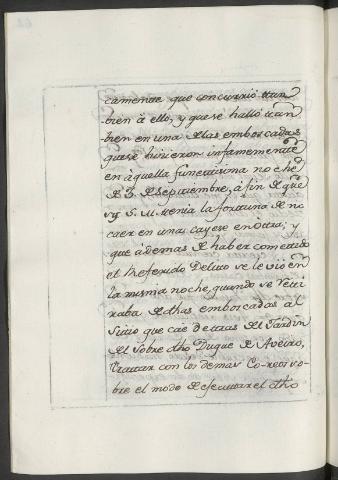 camente que concurriò tam
bien à ello, y que se hallò tam
bien en una de las emboscadas
que se hicieron infamemente
en aquella funestissima noche
de 3 de septiembre, à fin de que
si S. M. tenia la fortuna de no
caer en unas cayese en otra; y
que ademas de haber cometido
el Referido Delito se le viò en
la misma noche, quando se reti
raba de dhas emboscadas al
Sitio que cae detras del Jardin
del sobre dho Duque de Aveiro,
tratar con los demas Co-reos so-
bre el modo de efectuar el dho